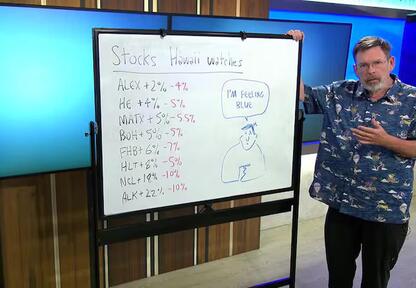 Stocks Hawaii watches
ALEX +2% -4%
HE +4% -5%
MATX +5% -5.5%
BOH +5% -5%
FHB +6% -7%
HLT +8% -5%
NCL +19% -10%
ALK +22% -10%
I'M FEELING
BLUE